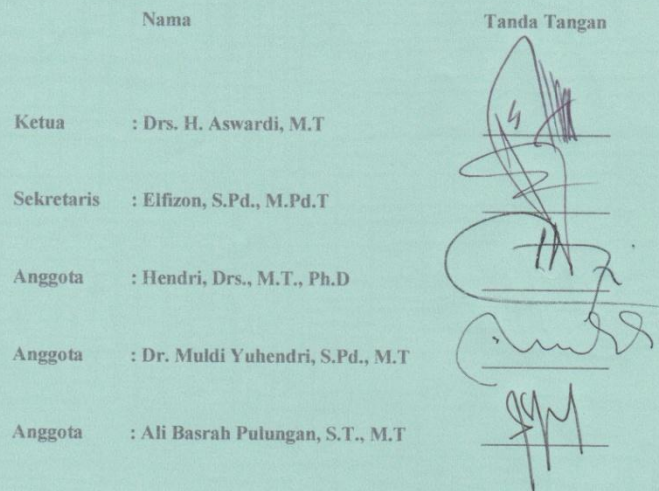 Nama Tanda Tangan
Ketua : Drs. H. Aswardi, M.T
Sekretaris : Elfizon, S.Pd., M.Pd.T
Anggota : Hendri, Drs., M.T., Ph.D
Anggota : Dr. Muldi Yuhendri, S.Pd., M.T
Anggota : Ali Basrah Pulungan, S.T., M.T